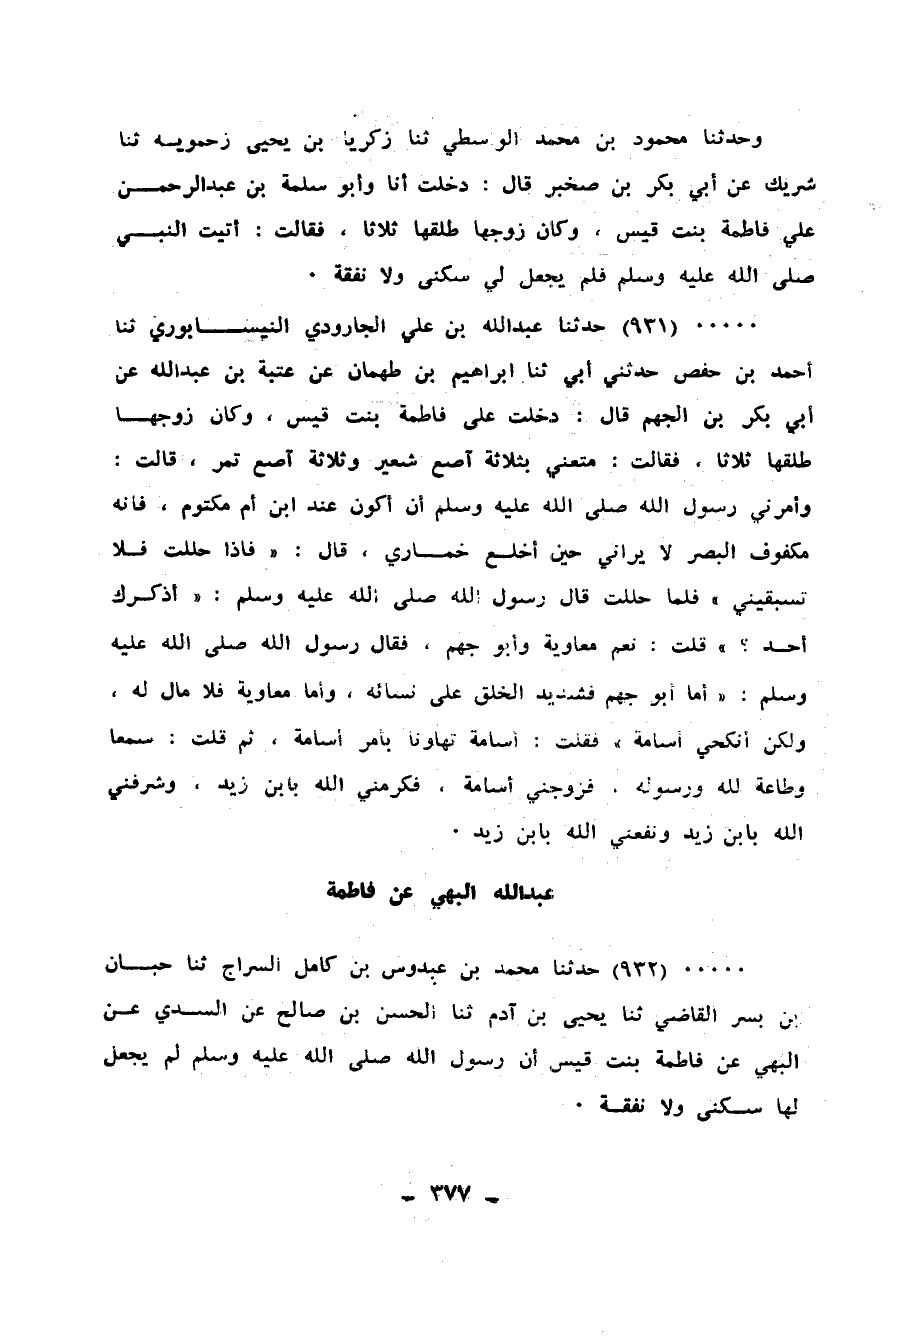 وحدثنا محمود بن محمد الوسطي ثنا زكريا بن يحيى زحمويه ثنا
شريك عن أبي بكر بن صخير قال : دخلت أنا وأبو سلمة بن عبدالرحمن
علي فاطمة بنت قيس ، وكان زوجها طلقها ثلاثا ، فقالت : أتيت النبي
صلى الله عليه وسلم فلم يجعل لي سكنى ولا نفقة ٠
٠٠٠٠٠ (٩٣١) حدثنا عبدالله بن علي الجارودي النيسابوري ثنا
أحمد بن حفص حدثني أبي ثنا ابراهيم بن طهمان عن عتبة بن عبدالله عن
أبي بكر بن الجهم قال : دخلت على فاطمة بنت قيس ، وكان زوجها
طلقها ثلاثا ، فقالت : متعني بثلاثة آصع شعير وثلاثة آصع تمر ، قالت :
وأمرني رسول الله صلى الله عليه وسلم أن أكون عند ابن أم مكتوم ، فانه
مكفوف البصر لا يراني حين أخلع خماري ، قال : « فاذا حللت فلا
تسبقيني » فلما حللت قال رسول الله صلى الله عليه وسلم : « أذكرك
أحد ؟ » قلت : نعم معاوية وأبو جهم ، فقال رسول الله صلى الله عليه
وسلم : « أما أبو جهم فشديد الخلق على نسائه ، وأما معاوية فلا مال له ،
ولكن أنكحي أسامة » فقلت : أسامة تهاونا بأمر أسامة ، ثم قلت : سمعا
وطاعة لله ورسوله . فزوجني أسامة ، فكرمني الله بابن زيد ، وشرفني
الله بابن زيد ونفعني الله بابن زيد ٠
عبدالله البهي عن فاطمة
٠٠٠٠٠ (٩٣٢) حدثنا محمد بن عبدوس بن كامل السراج ثنا حبان
بن بسر القاضي ثنا يحيى بن آدم ثنا الحسن بن صالح عن السدي عن
البهي عن فاطمة بنت قيس أن رسول الله صلى الله عليه وسلم لم يجعل
لها سكنى ولا نفقة ٠
- ٣٧٧ -